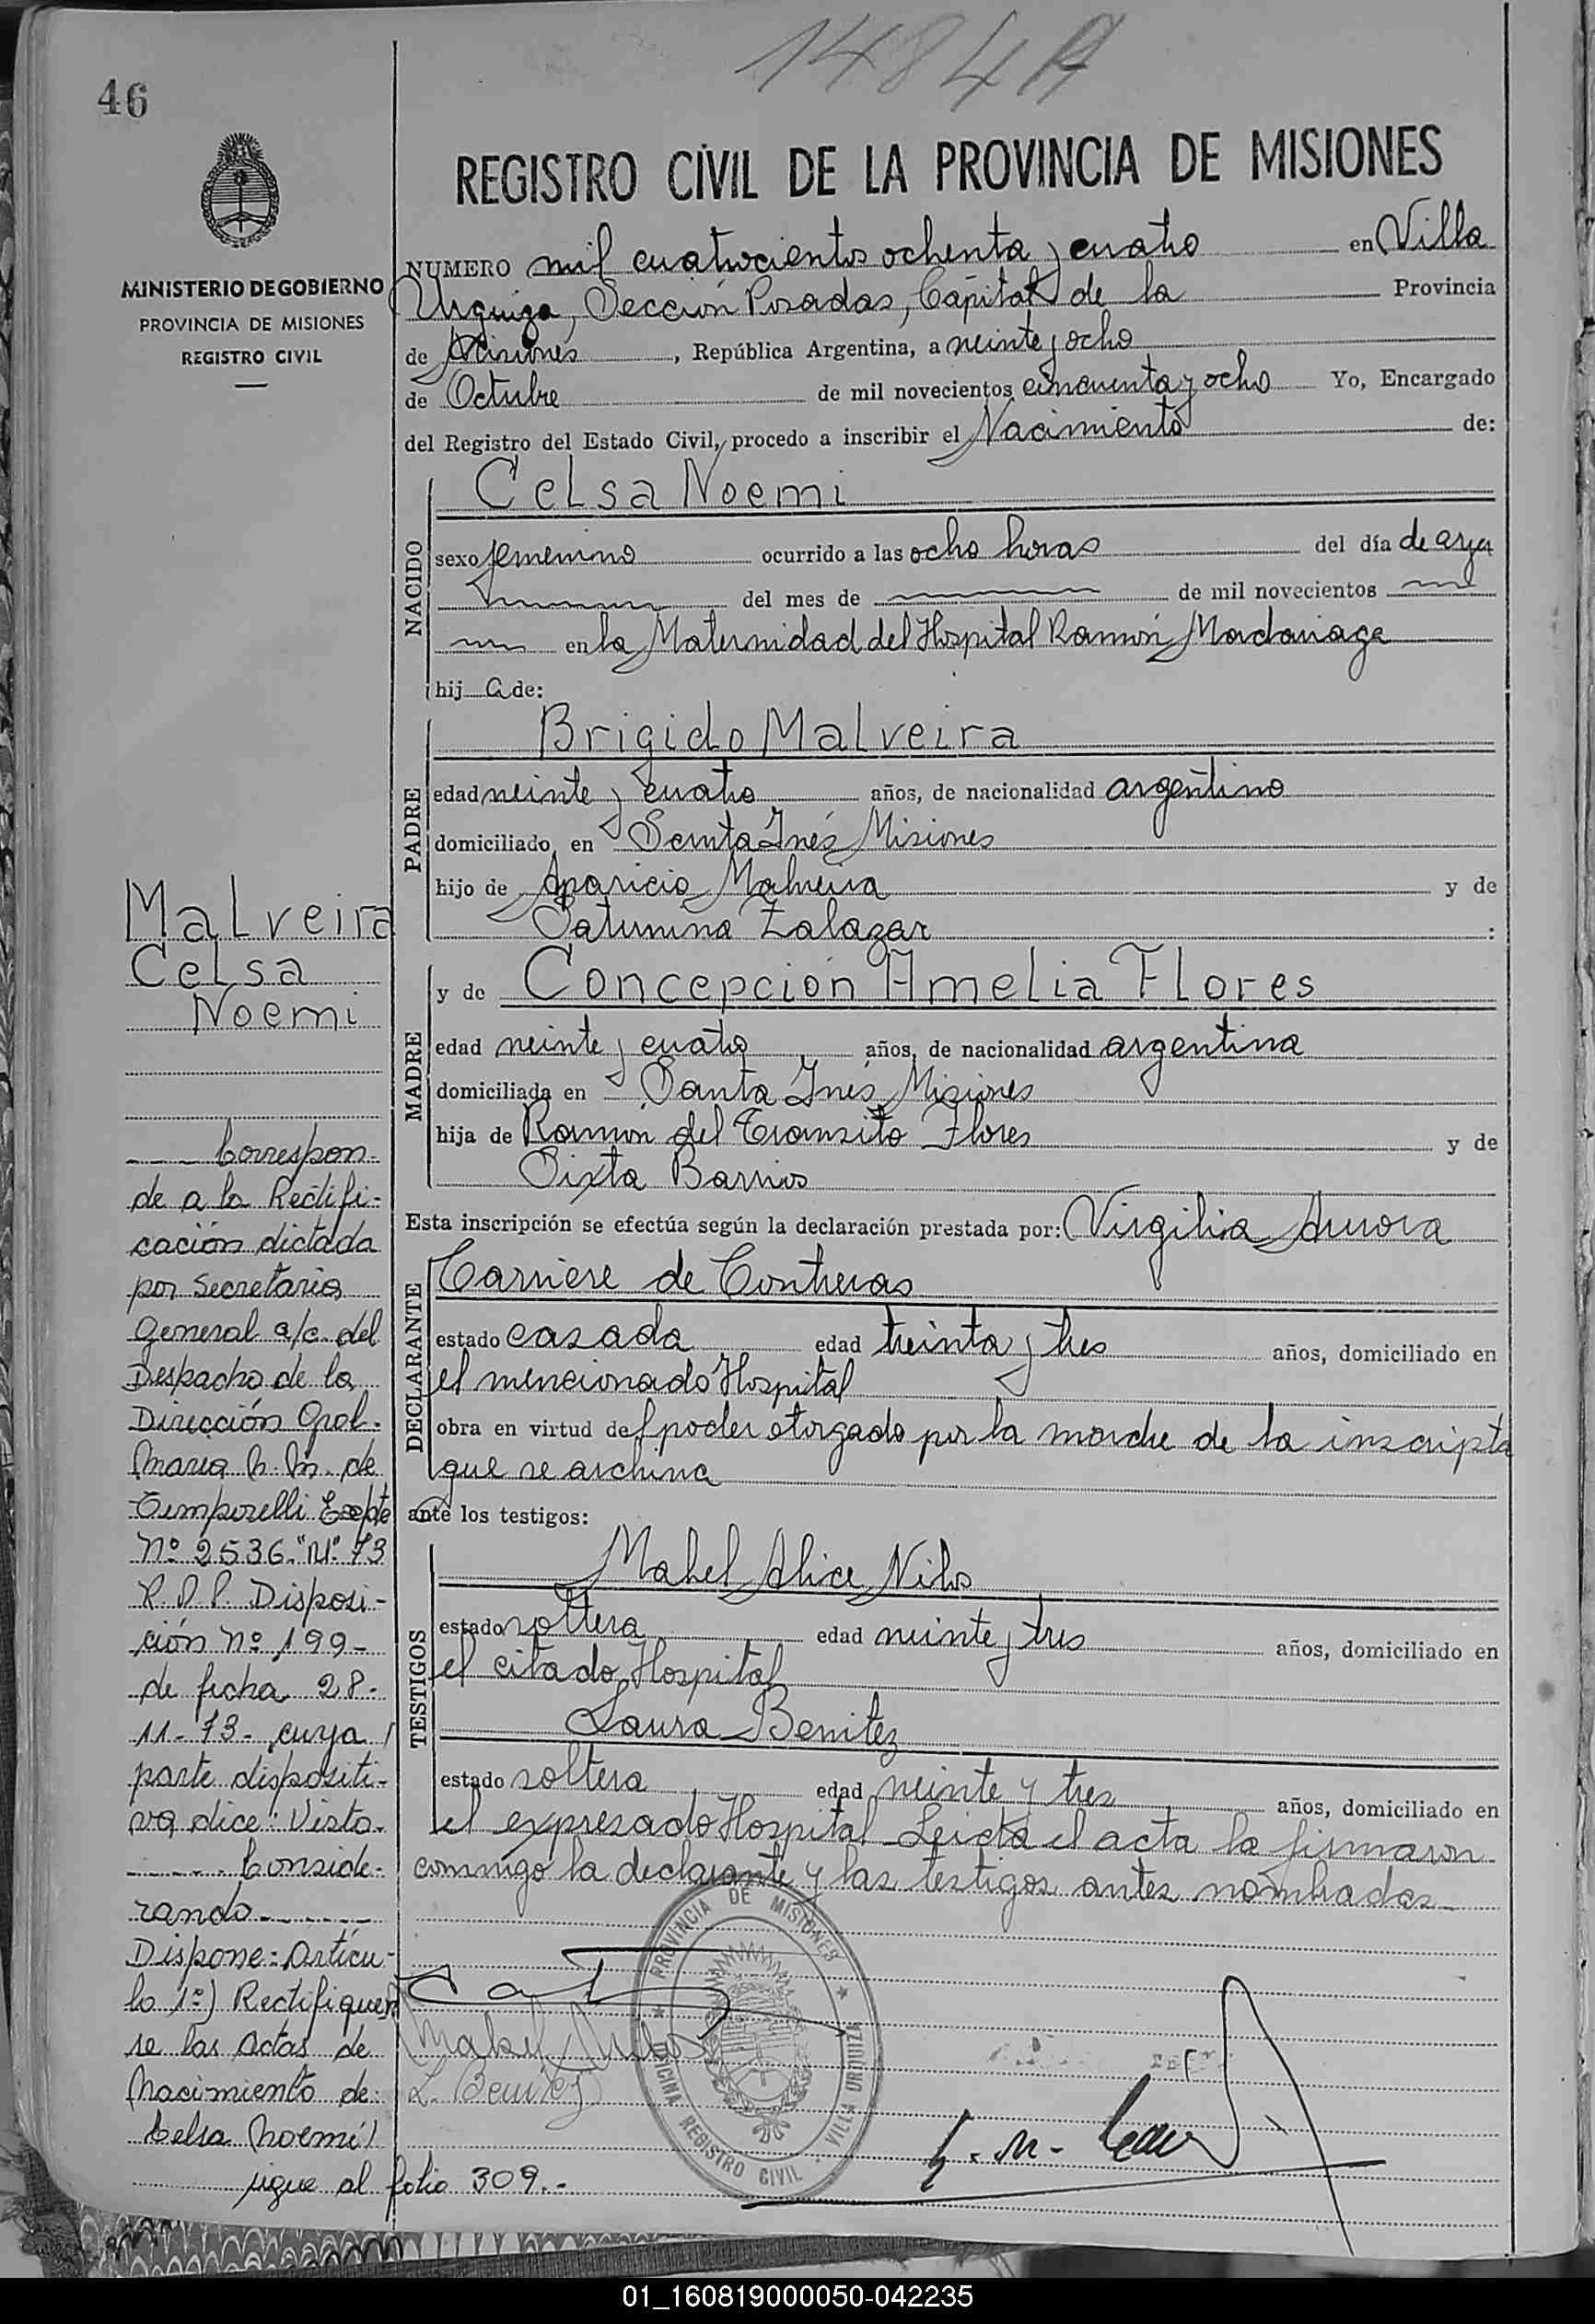 1484A
46
REGISTRO CIVIL DE LA PROVINCIA DE MISIONES
MINISTERIO DE GOBIERNO
PROVINCIA DE MISIONES
REGISTRO CIVIL
NUMERO mil cuatrocientos ochenta y cuatro en Villa
Urquiza, Sección Posadas, Capital de la Provincia
de Misiones, República Argentina, a veinte y ocho
de Octubre de mil novecientos cincuenta y ocho Yo, Encargado
del Registro del Estado Civil, procedo a inscribir el Nacimiento de:
NACIDO
Celsa Noemi
sexo femenino ocurrido a las ocho horas del día de ayer
del mes de de mil novecientos
en la Maternidad del Hospital Ramón Madariaga
hij a de:
PADRE
Brigido Malveira
edad veinte y cuatro años, de nacionalidad argentino
domiciliado en Santa Inés Misiones
hijo de Aparicio Malveira y de
Saturnina Zalazar :
MADRE
y de Concepción Amelia Flores
edad veinte y cuatro años, de nacionalidad argentina
domiciliada en Santa Inés Misiones
hija de Ramon del Transito Flores y de
Sixta Barrios
Esta inscripción se efectúa según la declaración prestada por: Virgilia Aurora
DECLARANTE
Carriere de Contreras
estado casada edad treinta y tres años, domiciliado en
el mencionado Hospital
obra en virtud del poder otorgado por la madre de la inscripta
que se archiva
ante los testigos:
TESTIGOS
Mabel Alice Nilos
estado soltera edad veinte y tres años, domiciliado en
el citado Hospital
Laura Benitez
estado soltera edad veinte y tres años, domiciliado en
el expresado Hospital Leida el acta la firmaron
conmigo la declarante y las testigos antes nombradas
Malveira
Celsa
Noemi
Correspon-
de a la Rectifi-
cación dictada
por Secretaria
General a/c. del
Despacho de la
Dirección Gral.
Maria M. de
Temporelli Expte
Nº 2536 "M" 73
R.D.P. Disposi-
ción Nº 199-
de fecha 28-
11-73- cuya
parte dispositi-
va dice: Visto-
Conside-
rando
Dispone: Artícu-
lo 1º) Rectifiquen
se las Actas de
Nacimiento de:
Celsa Noemí
sigue al folio 309.-
Mabel Nilos
L. Benitez
PROVINCIA DE MISIONES
OFICINA REGISTRO CIVIL VILLA URQUIZA
01_160819000050-042235